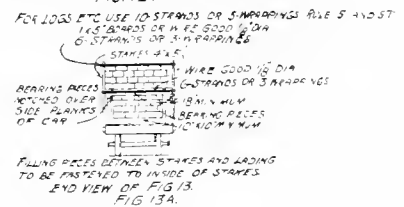 FOR LOGS ETC USE 10-STRANDS OR 5-WRAPPINGS RULE 5 AND 5T
1x5" BOARDS OR WIRE GOOD 1/8" DIA
6-STRANDS OR 3-WRAPPINGS
STAKES 4"x5"
WIRE GOOD 1/8 DIA
6-STRANDS OR 3 WRAPPINGS
BEARING PIECES
NOTCHED OVER
SIDE PLANKS
OF CAR
18" MINIMUM
BEARING PIECES
10"x10" MINIMUM
FILLING PIECES BETWEEN STAKES AND LADING
TO BE FASTENED TO INSIDE OF STAKES.
END VIEW OF FIG 13.
FIG 13A.